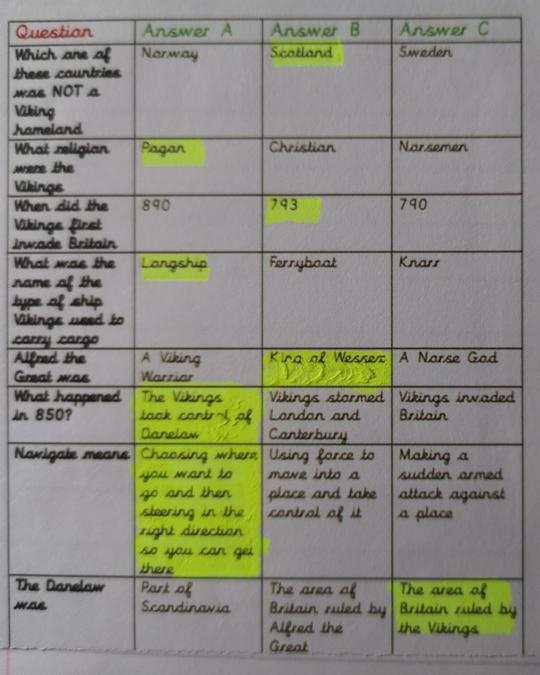 Question Answer A Answer B Answer C
Which are of Norway Scotland Sweden
these countries
was NOT a
Viking
homeland
What religion Pagan Christian Norsemen
were the
Vikings
When did the 890 793 790
Vikings first
invade Britain
What was the Longship Ferryboat Knarr
name of the
type of ship
Vikings used to
carry cargo
Alfred the A Viking King of Wessex A Norse God
Great was Warrior
What happened The Vikings Vikings stormed Vikings invaded
in 850? took control of London and Britain
Danelaw Canterbury
Navigate means Choosing where Using force to Making a
you want to move into a sudden armed
go and then place and take attack against
steering in the control of it a place
right direction
so you can get
there
The Danelaw Part of The area of The area of
was Scandinavia Britain ruled by Britain ruled by
Alfred the the Vikings
Great